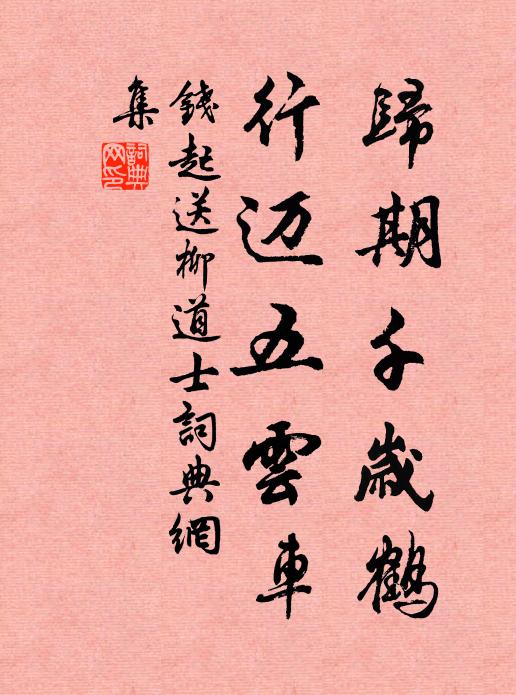 歸期千歲鶴
行迈五雲車
錢起送柳道士詞典網
集
詞典
网印